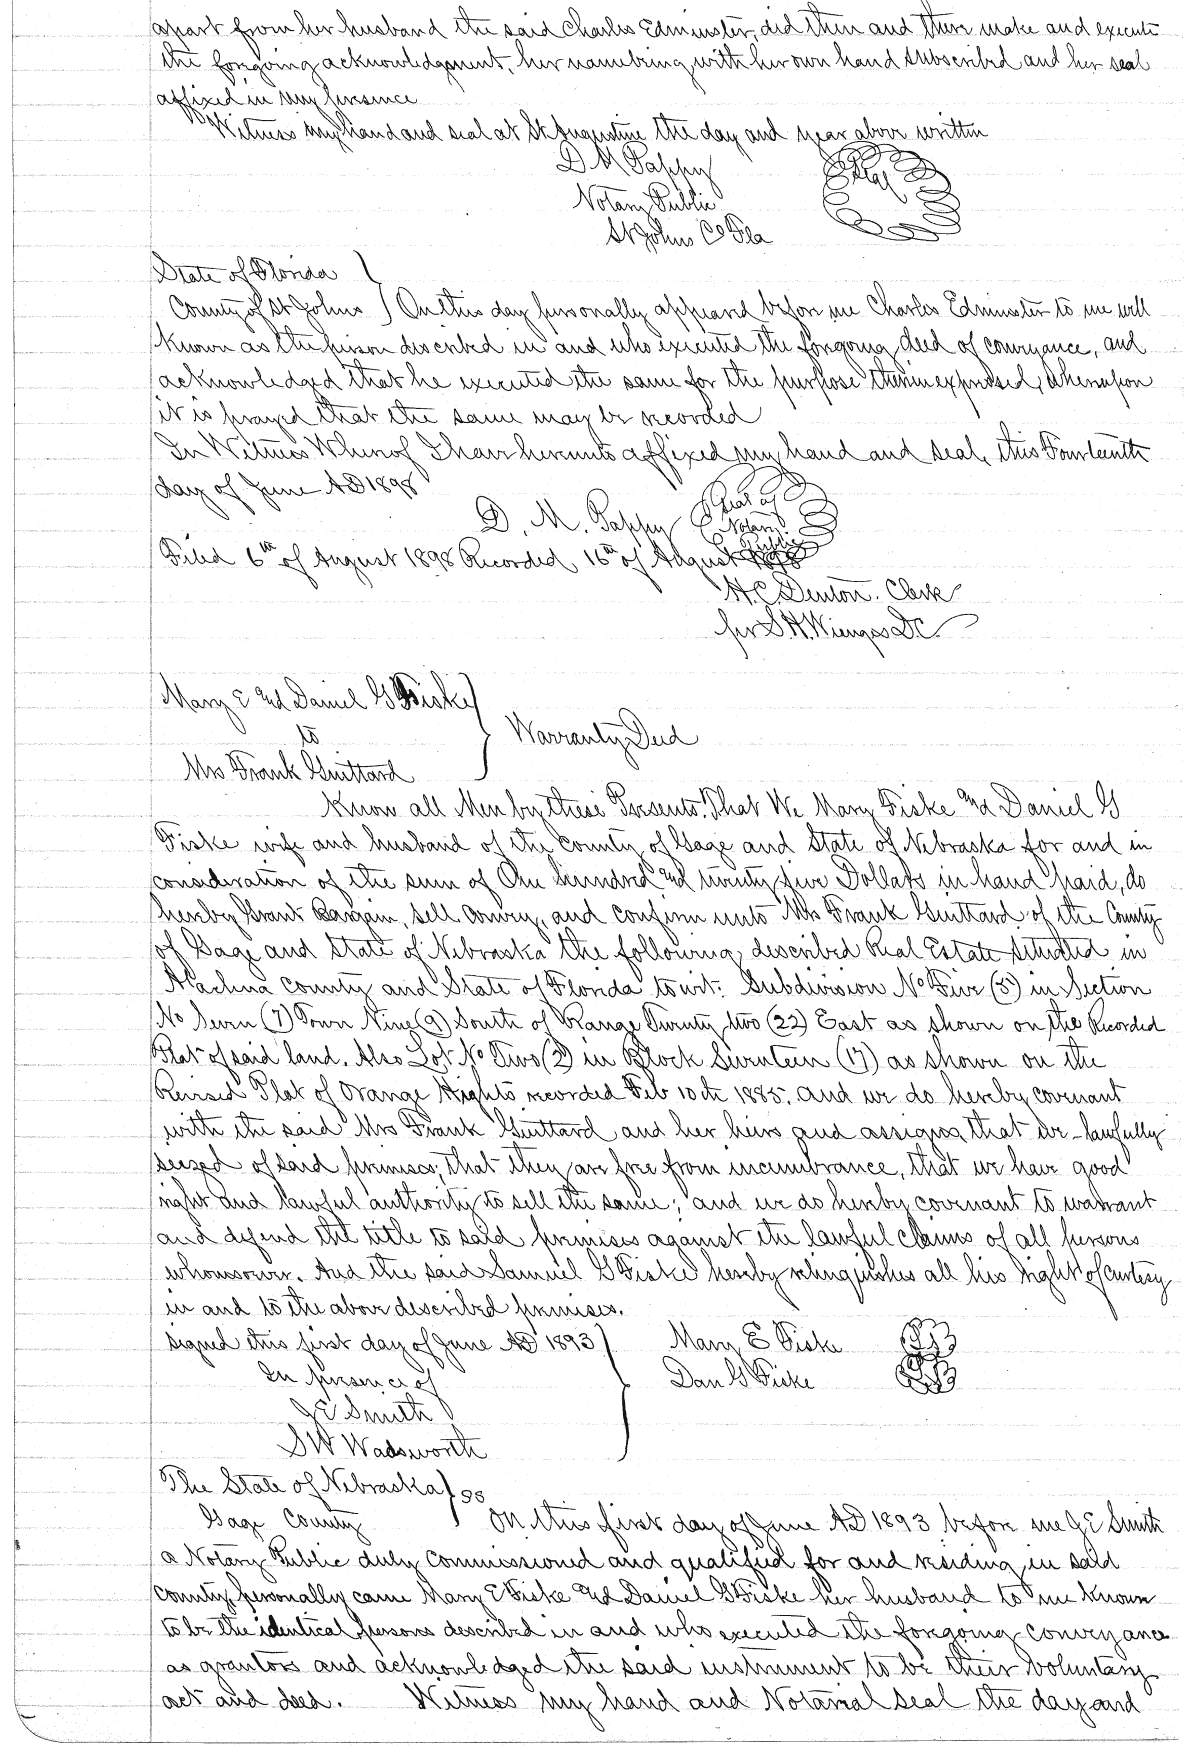 apart from her husband the said Charles Edminster, did then and there make and execute
the forgoing acknowledgment, her name being with her own hand subscribed and her seal
affixed in my presence
Witness my hand and seal at St Augustine the day and year above written
D M Pappy
Seal
Notary Public
St Johns Co Fla
State of Florida
County of St Johns } On this day personally appeared before me Charles Edminster to me well
known as the person described in and who executed the forgoing deed of conveyance, and
acknowledged that he executed the same for the purpose therein expressed, whereupon
it is prayed that the same may be recorded
In Witness Whereof I have hereunto affixed my hand and seal, this Fourteenth
day of June AD 1898
D. M. Pappy
Seal of
Notary
Public
Filed 6th of August 1898 Recorded 16th of August 1898
H. C. Denton. Clerk
per S. H. Wienges D.C.
Mary E and Daniel G Fiske
to
Warranty Deed
Mrs Frank Guittard
Know all Men by these Presents. That We Mary Fiske and Daniel G
Fiske wife and husband of the County of Gage and State of Nebraska for and in
consideration of the sum of One hundred and twenty five Dollars in hand paid, do
hereby Grant Bargain, sell convey, and confirm unto Mrs Frank Guittard of the County
of Gage and State of Nebraska the following described Real Estate situated in
Alachua County and State of Florida to wit: Subdivision No Five (5) in Section
No Seven (7) Town Nine (9) South of Range Twenty two (22) East as shown on the Recorded
Plat of said land. Also Lot No Two (2) in Block Seventeen (17) as shown on the
Revised Plat of Orange Hights recorded Feb 10th 1885. and we do hereby covenant
with the said Mrs Frank Guittard and her heirs and assigns, that we - lawfully
seized of said premises; that they are free from incumbrance, that we have good
right and lawful authority to sell the same; and we do hereby covenant to warrant
and defend the title to said premises against the lawful claims of all persons
whomsoever. And the said Samuel G Fiske hereby relinquishes all his right of curtesy
in and to the above described premises.
signed this first day of June AD 1893 } Mary E Fiske
In presence of Dan G Fiske
J E Smith
S W Wadsworth
The State of Nebraska } ss
Gage County On this first day of June AD 1893 before me J E Smith
a Notary Public duly commissioned and qualified for and residing in said
county, personally came Mary E Fiske and Daniel G Fiske her husband to me known
to be the identical persons described in and who executed the forgoing conveyance
as grantors and acknowledged the said instrument to be their voluntary
act and deed. Witness my hand and Notarial seal the day and